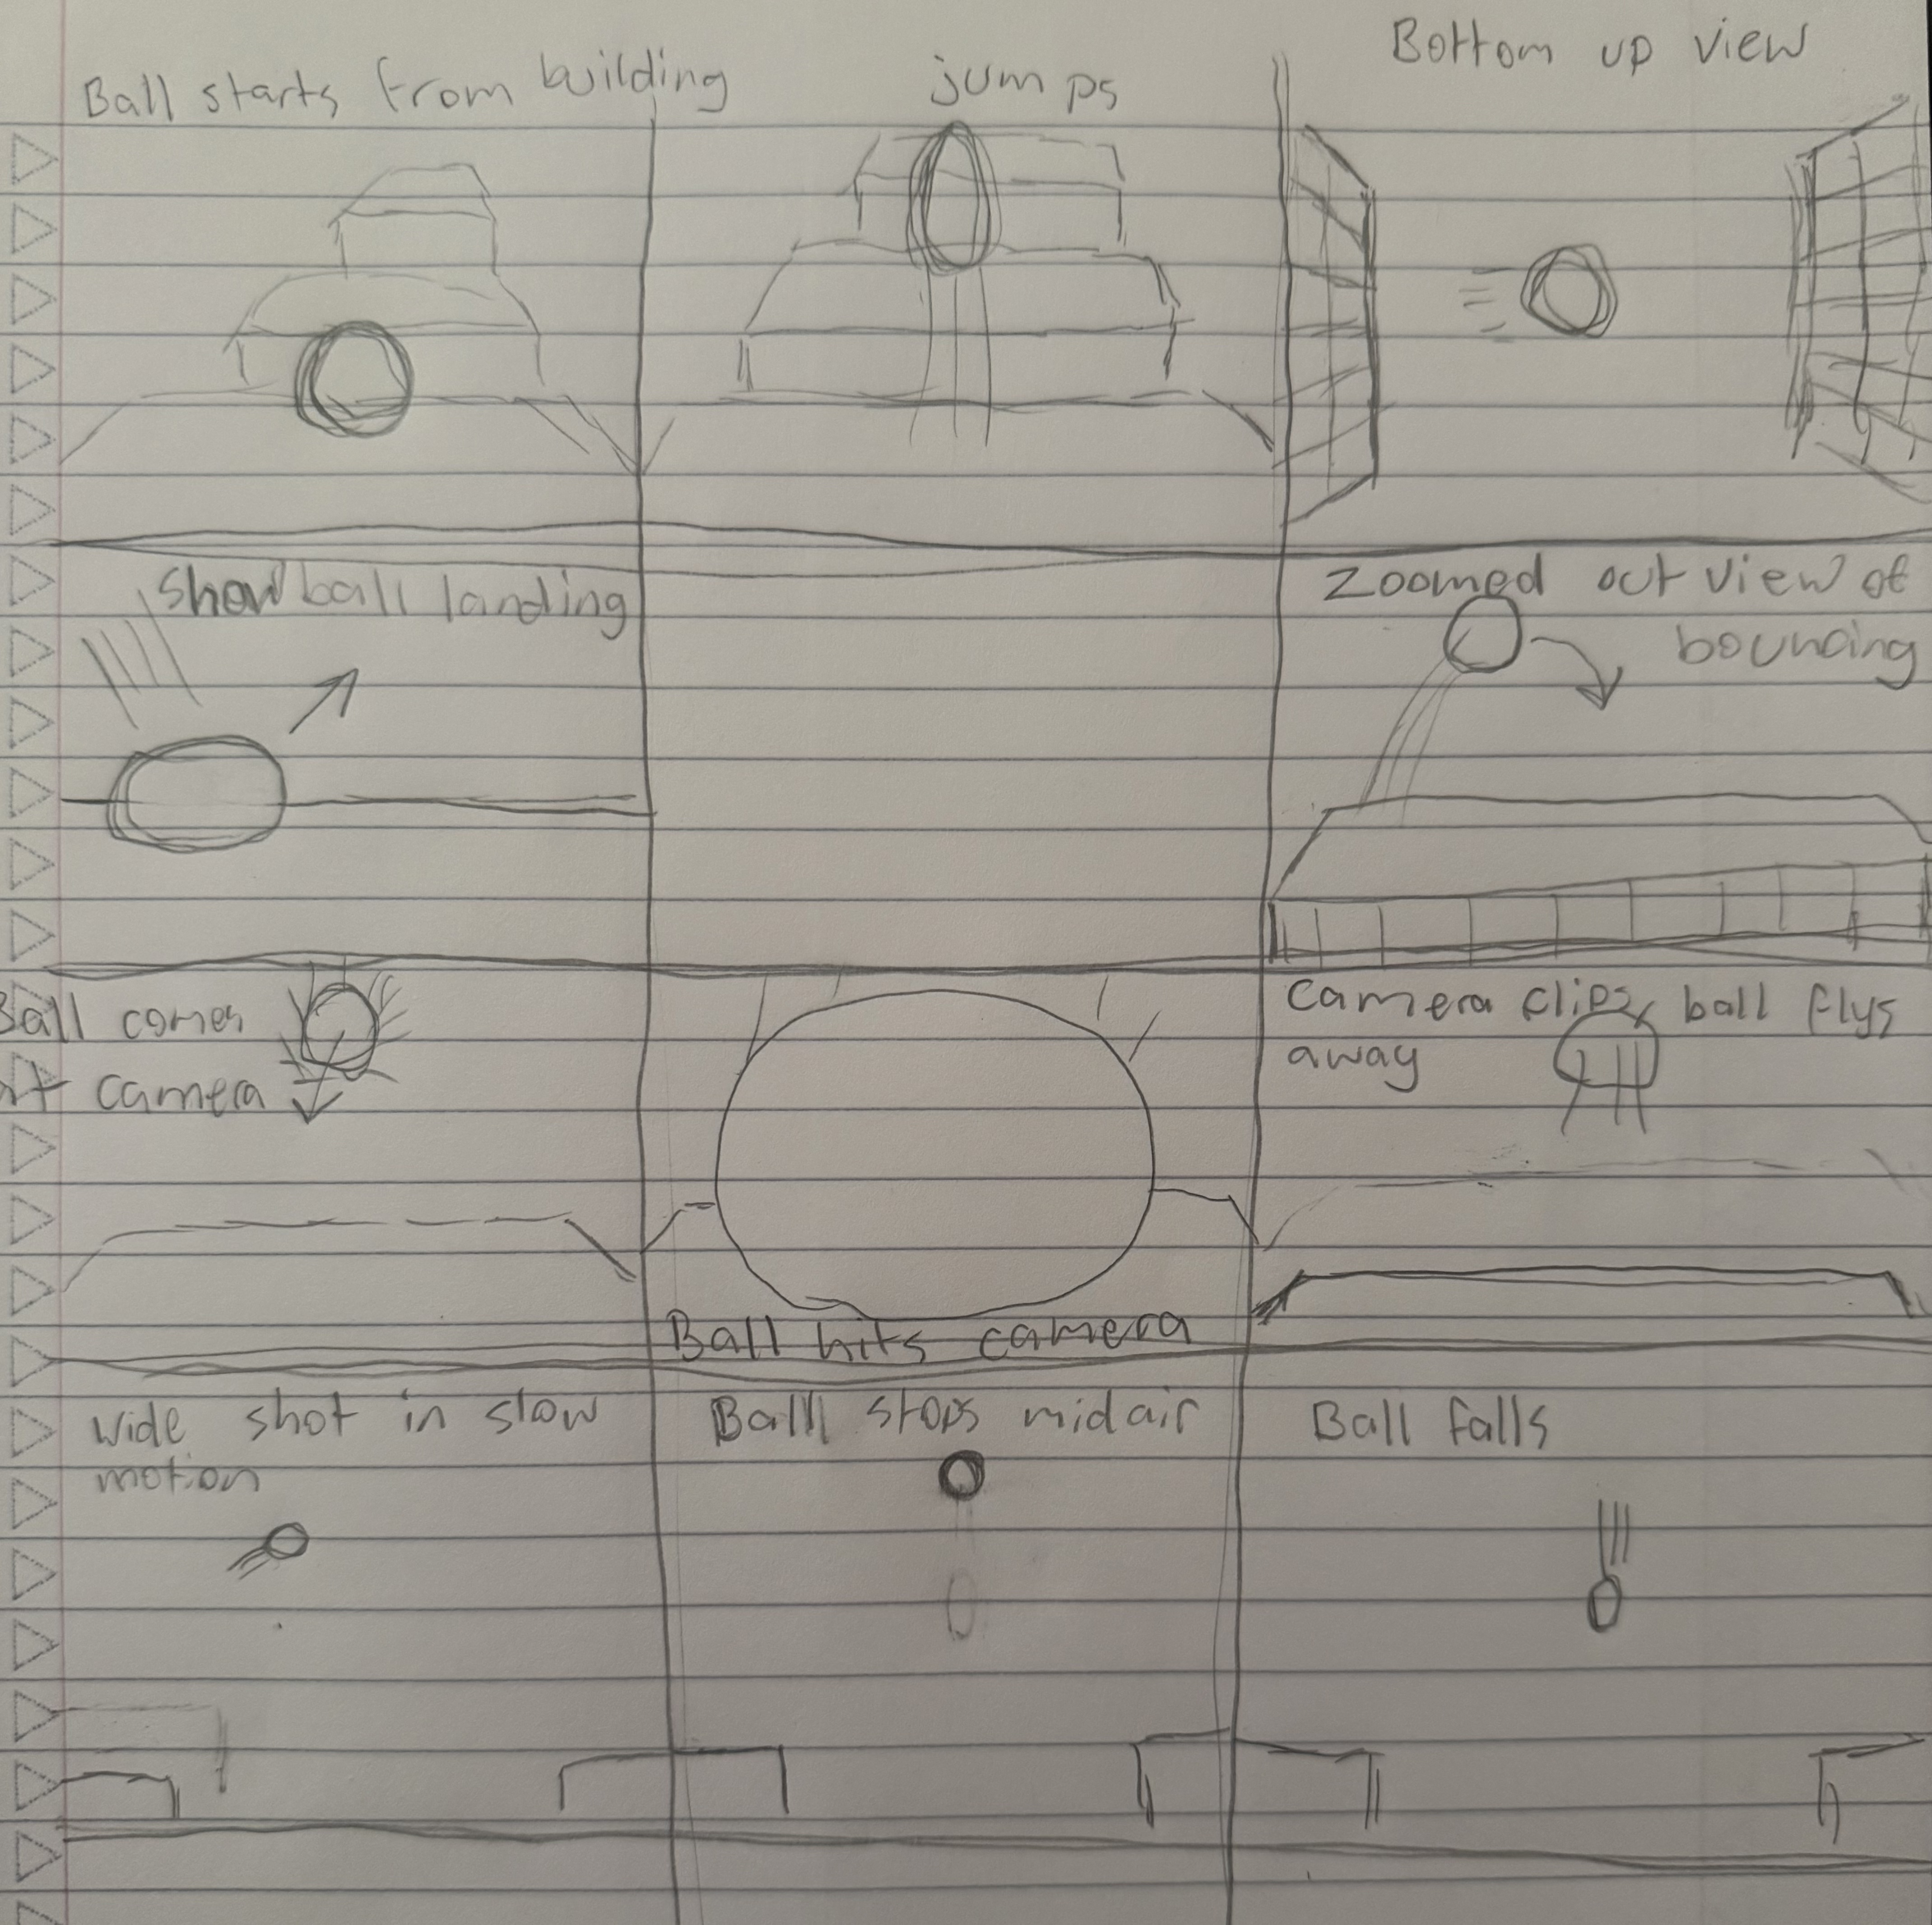 Ball starts from building
jumps
Bottom up view
Show ball landing
Zoomed out view of
bouncing
Ball comes
at camera
Ball hits camera
Camera clips, ball flys
away
Wide shot in slow
motion
Balll stops midair
Ball falls